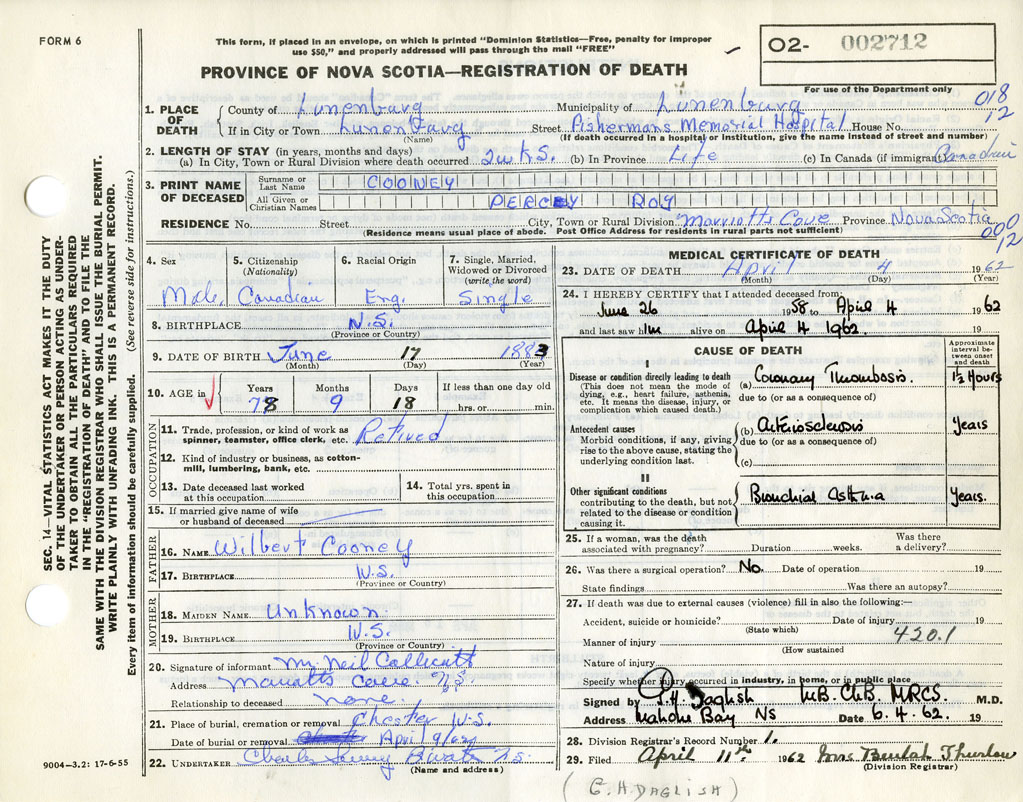 FORM 6
This form, if placed in an envelope, on which is printed "Dominion Statistics—Free, penalty for improper
use $50," and properly addressed will pass through the mail "FREE"
O2- 002712
PROVINCE OF NOVA SCOTIA—REGISTRATION OF DEATH
For use of the Department only
018
12
1. PLACE OF DEATH
County of Lunenburg Municipality of Lunenburg
If in City or Town Lunenburg Street Fishermans Memorial Hospital House No.
(Name) (If death occurred in a hospital or institution, give the name instead of street and number)
2. LENGTH OF STAY (in years, months and days)
(a) In City, Town or Rural Division where death occurred 2 wks. (b) In Province Life (c) In Canada (if immigrant) Canadian
3. PRINT NAME OF DECEASED
Surname or Last Name COONEY
All Given or Christian Names PERCEY ROY
RESIDENCE No. Street City, Town or Rural Division Marriotts Cove Province Nova Scotia
(Residence means usual place of abode. Post Office Address for residents in rural parts not sufficient)
000
12
SEC. 14—VITAL STATISTICS ACT MAKES IT THE DUTY
OF THE UNDERTAKER OR PERSON ACTING AS UNDER-
TAKER TO OBTAIN ALL THE PARTICULARS REQUIRED
IN THE "REGISTRATION OF DEATH" AND TO FILE THE
SAME WITH THE DIVISION REGISTRAR WHO SHALL ISSUE THE BURIAL PERMIT.
WRITE PLAINLY WITH UNFADING INK. THIS IS A PERMANENT RECORD.
Every item of information should be carefully supplied. (See reverse side for instructions.)
4. Sex
Male
5. Citizenship
(Nationality)
Canadian
6. Racial Origin
Eng.
7. Single, Married,
Widowed or Divorced
(write the word)
Single
8. BIRTHPLACE N.S.
(Province or Country)
9. DATE OF BIRTH June 17 1883
(Month) (Day) (Year)
10. AGE in
Years Months Days If less than one day old
78 9 18 hrs. or min.
OCCUPATION
11. Trade, profession, or kind of work as
spinner, teamster, office clerk, etc. Retired
12. Kind of industry or business, as cotton-
mill, lumbering, bank, etc.
13. Date deceased last worked
at this occupation
14. Total yrs. spent in
this occupation
15. If married give name of wife
or husband of deceased
FATHER
16. NAME Wilbert Cooney
17. BIRTHPLACE N.S.
(Province or Country)
MOTHER
18. MAIDEN NAME Unknown
19. BIRTHPLACE N.S.
(Province or Country)
20. Signature of informant Mr. Neil Collicutt
Address Marriotts Cove N.S.
Relationship to deceased none
21. Place of burial, cremation or removal Chester N.S.
Date of burial or removal April 9/62
22. UNDERTAKER Charles N.S.
(Name and address)
9004-3.2: 17-6-55
MEDICAL CERTIFICATE OF DEATH
23. DATE OF DEATH April 4 1962
(Month) (Day) (Year)
24. I HEREBY CERTIFY that I attended deceased from:
June 26 1958 to April 4 1962
and last saw him alive on April 4 1962. 19
CAUSE OF DEATH
Approximate
interval be-
tween onset
and death
I
Disease or condition directly leading to death
(This does not mean the mode of
dying, e.g., heart failure, asthenia,
etc. It means the disease, injury, or
complication which caused death.)
(a) Coronary Thrombosis. 1½ Hours
due to (or as a consequence of)
Antecedent causes
Morbid conditions, if any, giving
rise to the above cause, stating the
underlying condition last.
(b) Arteriosclerosis Years
due to (or as a consequence of)
(c)
II
Other significant conditions
contributing to the death, but not
related to the disease or condition
causing it.
Bronchial Asthma Years.
25. If a woman, was the death
associated with pregnancy? Duration weeks. Was there
a delivery?
26. Was there a surgical operation? No. Date of operation 19
State findings Was there an autopsy?
27. If death was due to external causes (violence) fill in also the following:—
Accident, suicide or homicide? Date of injury 19
(State which)
420.1
Manner of injury
(How sustained
Nature of injury
Specify whether injury occurred in industry, in home, or in public place
Signed by G.H. Daglish M.B. Ch.B. M.R.C.S. M.D.
Address Mahone Bay NS Date 6.4.62. 19
28. Division Registrar's Record Number 1.
29. Filed April 11th 1962 Mrs Beulah Thurlow
(Division Registrar)
(G.H. DAGLISH)